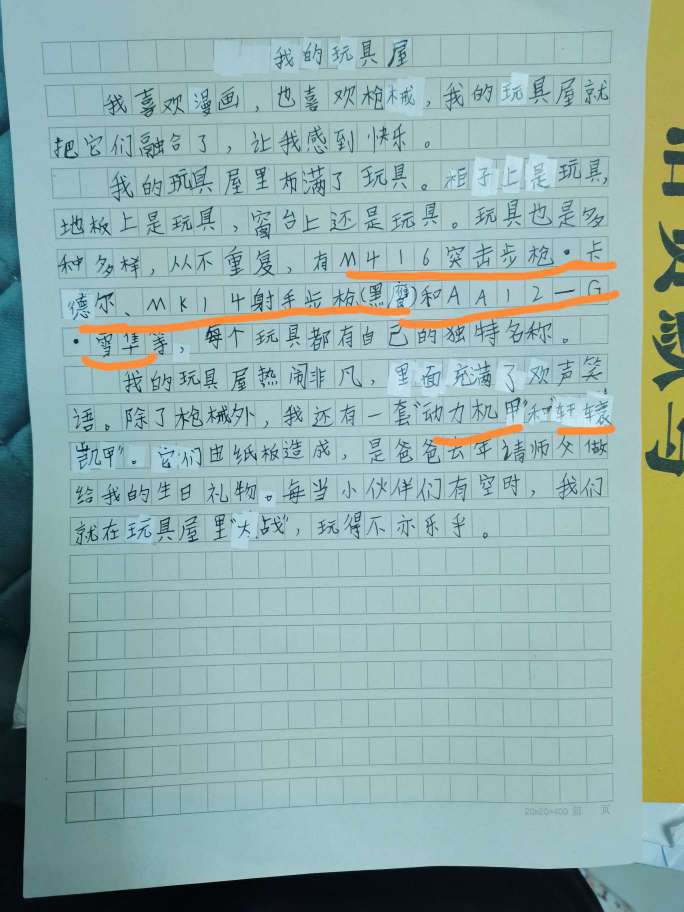 我的玩具屋
我喜欢漫画，也喜欢枪械，我的玩具屋就
把它们融合了，让我感到快乐。
我的玩具屋里布满了玩具。柜子上是玩具，
地板上是玩具，窗台上还是玩具。玩具也是多
种多样，从不重复，有M416突击步枪·卡
德尔、MK14射手步枪(黑鹰)和AA12—G
·雪隼等，每个玩具都有自己的独特名称。
我的玩具屋热闹非凡，里面充满了欢声笑
语。除了枪械外，我还有一套“动力机甲”和“轩辕
凯甲”。它们由纸板造成，是爸爸去年请师父做
给我的生日礼物。每当小伙伴们有空时，我们
就在玩具屋里“大战”，玩得不亦乐乎。
20x20=400
页